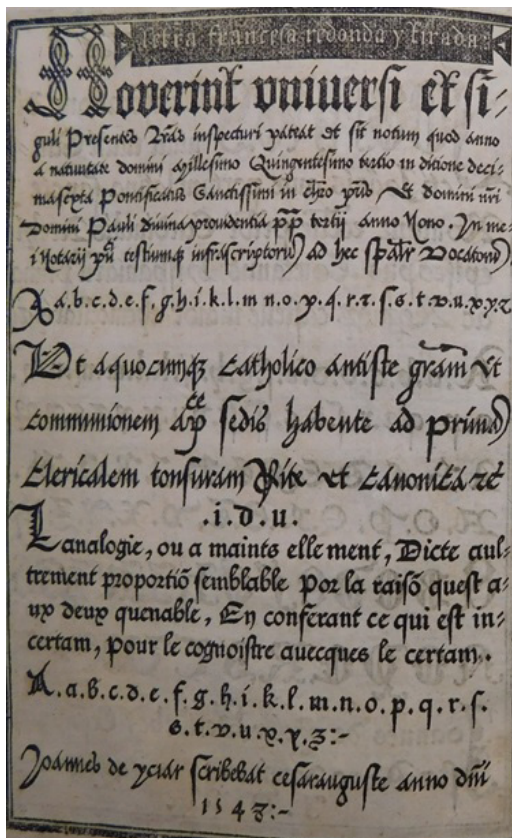 Letra francesa redonda y tirada:
Noverint vniuersi et si-
guli Presentes Lr̃as inspecturi pateat et sit notum quod anno
a natiuitate domini Millesimo Quingentesimo tertio in ditione deci-
masexta Pontificatus Sanctissimi in chr̃o pr̃is, Et domini nr̃i
Domini Pauli diuina prouidentia pp̃ tertii anno Nono. In me-
i Notarii testiumq; infrascriptorum ad hec Vocatorum
A a.b.c.d.e.f.g.h.i.k.l.m n.o.p.q.r.ꝛ.s.s.t.v.u.x.y.z
Et a quocumq; Catholico antiste gr̃am et
Communionem ap̃ce sedis habente ad primam
Clericalem tonsuram Rite et Canonica ꝛc̃
.i.d.u.
Lanalogie, ou a maints elle ment, Dicte aul-
trement proportiõ semblable Por la raisõ quest a-
ux deux quenable, En conferant ce qui est in-
certam, pour le cognoistre auecques le certam.
A.a.b.c.d.e.f.g.h.i.k.l.m.n.o.p.q.r.s.
s.t.v.u.x.y.z:-
Joannes de yciar scribebat cesarauguste anno dñi
1543:-